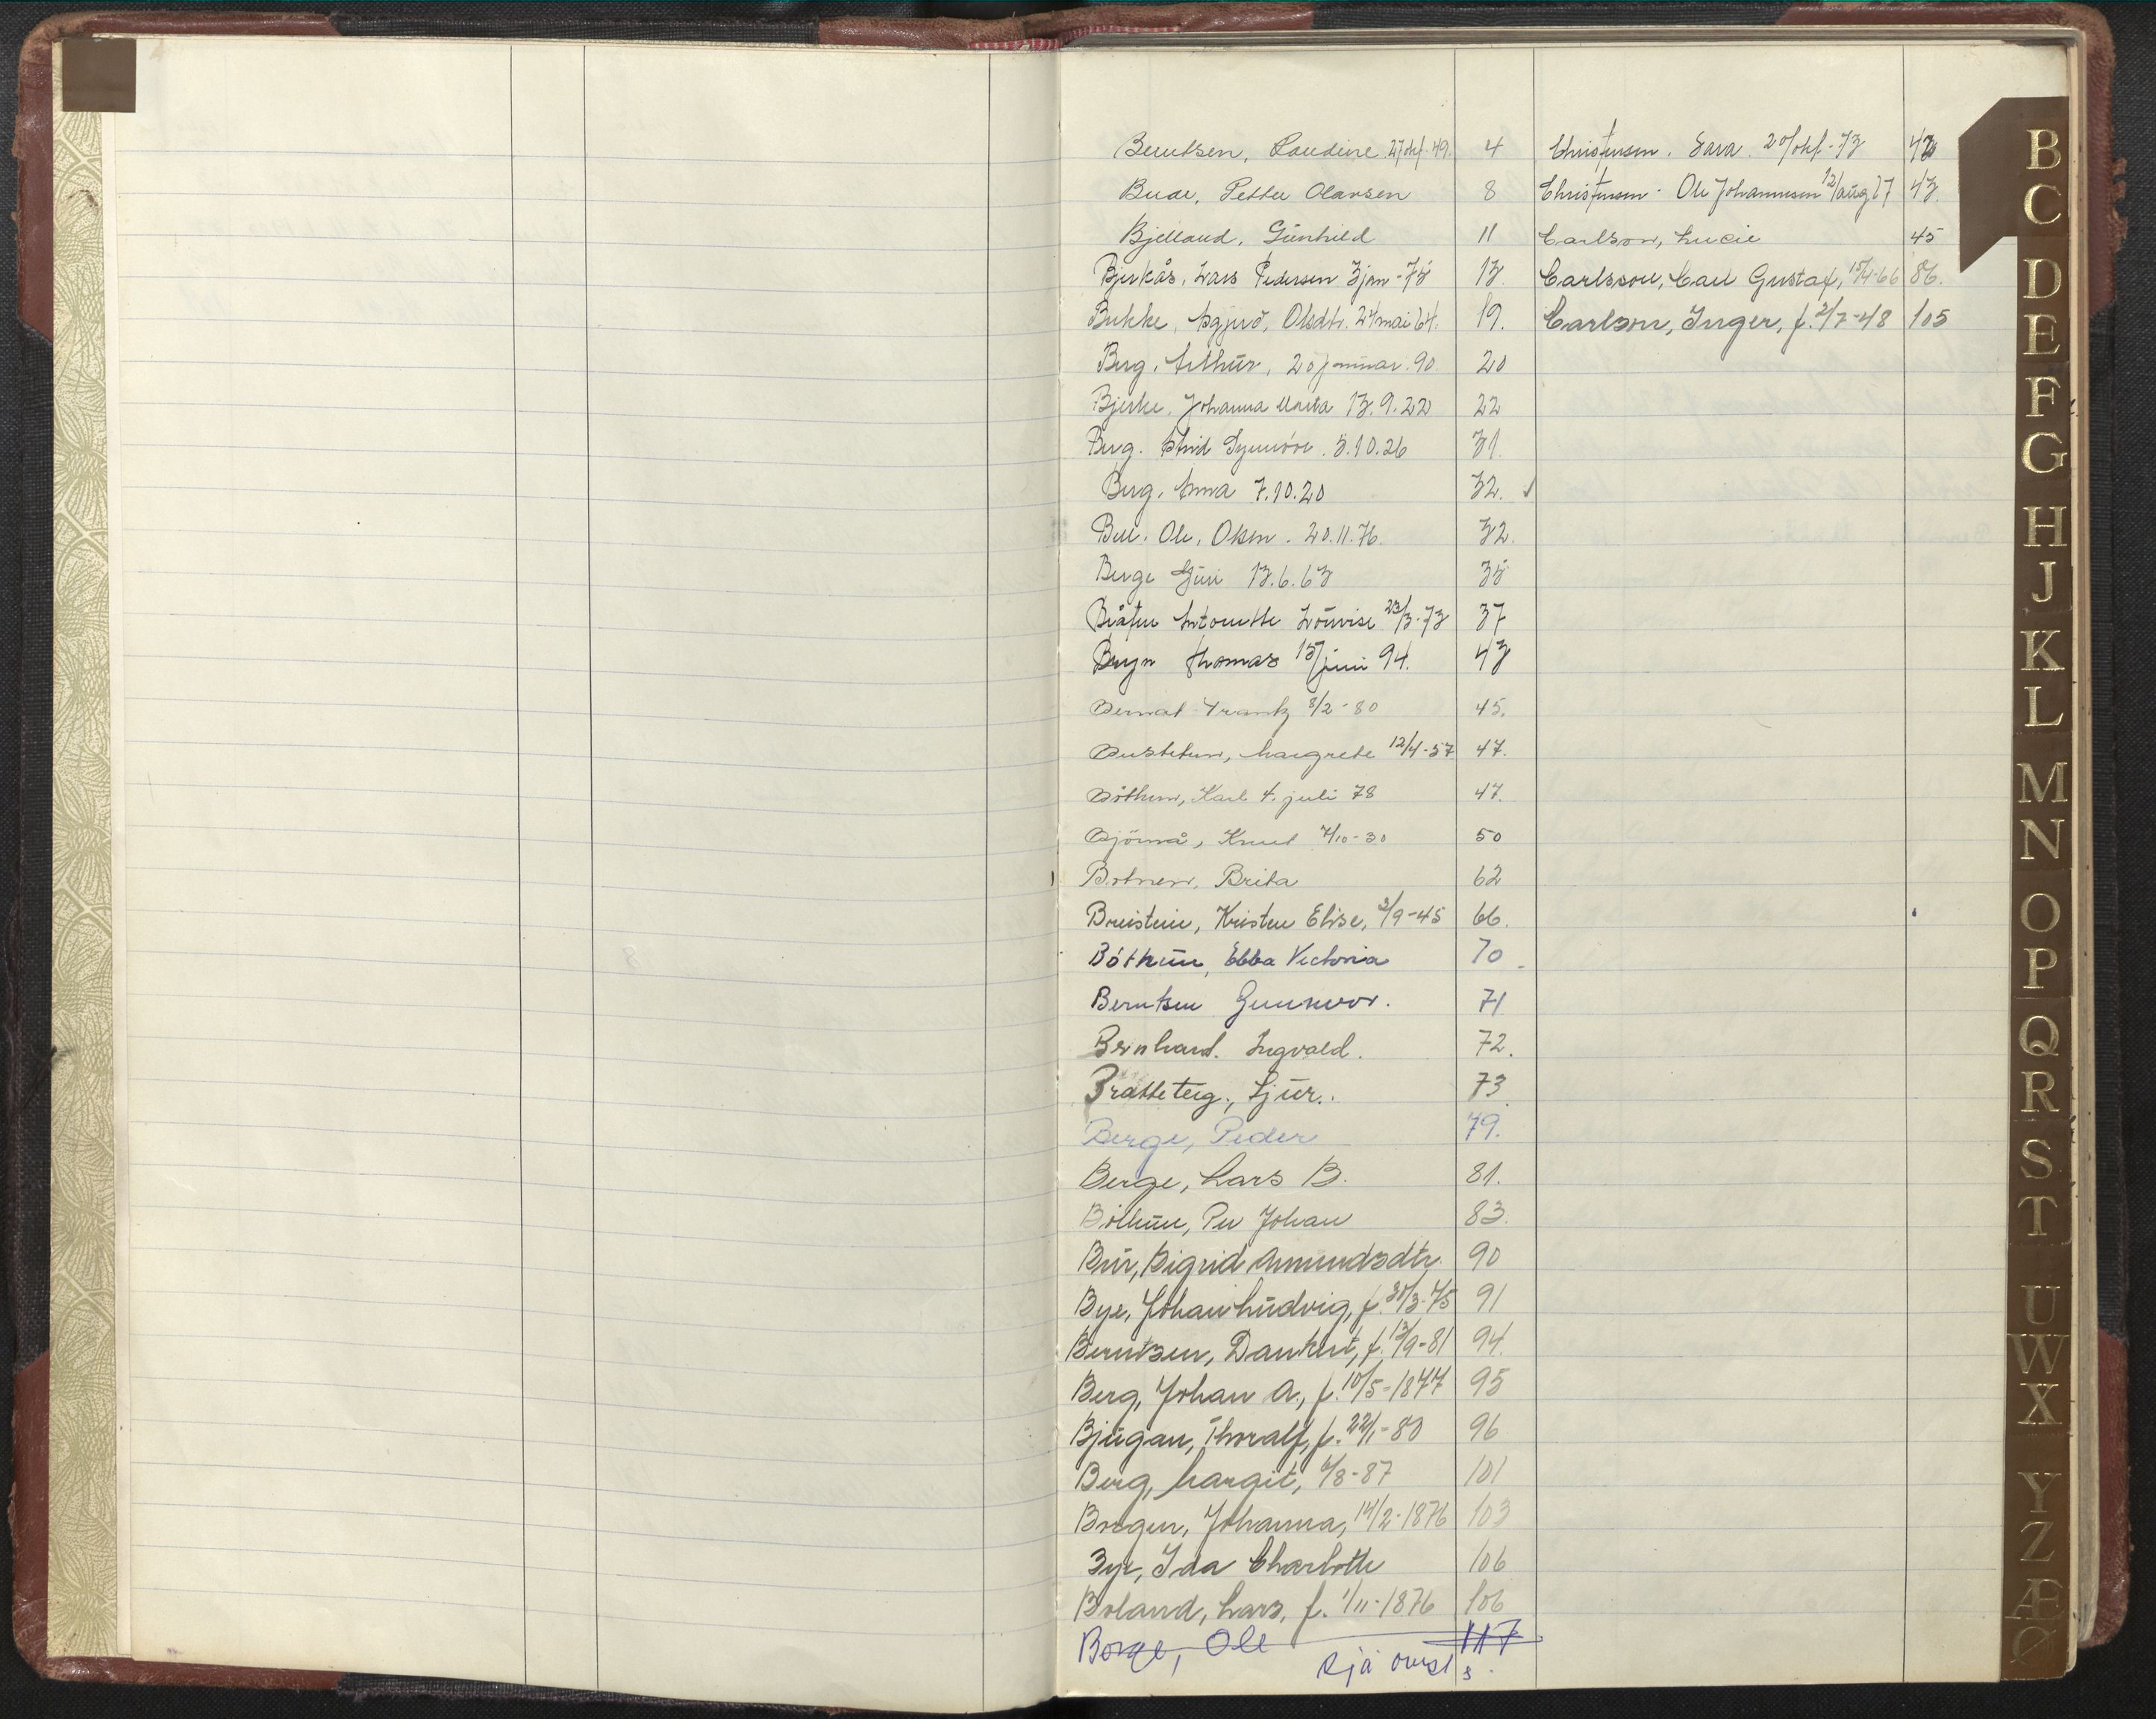 Berntsen, Laudine 27/okt. 49. 4
Bude, Petter Olavsen 8
Bjelland, Gunhild 11
Bjerkås, Lars Pedersen 3 jan - 75 13.
Bukke, Sygni, Olsdtr. 24 mai 64. 19.
Berg, Arthur, 20 januar. 90 20
Bjerke, Johanna Marta 13.9.22 22
Berg. Astrid Synnöve. 5.10.26 31.
Berg, Anna 7.10.20 32.
Ole, Olsen. 20.11.76. 32.
Berge Guri 13.6.63 35
Antonette Lovise 23/3-73 37
Bryn Thomas 15/juni 94. 43
Bernat Frank 8/2-80 45.
Margrete 12/4-57 47.
Böthun, Karl 4. juli 78 47.
Knut 7/10-30 50
Botnen, Brita 62
Breistein, Kristen Elise, 3/9-45 66.
Böthun, Ebba Victoria 70
Berntsen Gunnvor. 71
Bernhard. Ingvald. 72.
Bratteteig., Sjur.. 73.
Berge, Peder 79.
Berge, Lars B. 81.
Böthun, Per Johan 83.
Bur, Sigrid Amundsdtr. 90
Bye, Johan Ludvig, f. 30/3-75 91
Berntzen, Dankert, f. 13/9-81 94.
Berg, Johan A., f. 10/5-1877 95
Bjugan, Thoralf, f. 22/1-80 96
Berg, Margit, 6/8-87 101
Bregen, Johanna, 14/2-1876 103
Bye, Ida Charlotte 106
Boland, Lars, f. 1/11-1876 106
Borge, Ole 117
sjå øvrst s.
Christensen. Sara. 20/okt.-73 43
Christensen. Ole Johannesen 12/aug 27 43.
Carlson, Lucie 45
Carlsson, Carl Gustaf, 15/4-66 86.
Carlson, Inger, f. 2/7-48 105
B
C
D
E
F
G
H
J
K
L
M
N
O
P
Q
R
S
T
U
W
X
Y
Z
Æ
Ø